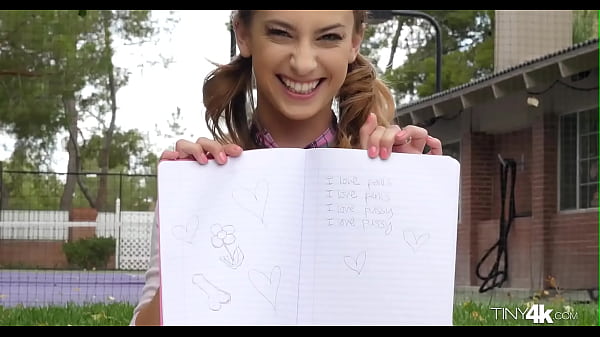 I love
I love
I love pussy
I love pussy
TINY4K.COM